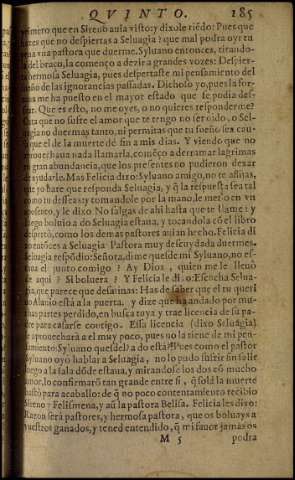 QVINTO. 185
primero que en Sireno auia visto y dixole riẽdo: Pues que
hazes que no despiertas a Seluagia? que mal podra oyr tu
una pastora que duerme. Syluano entonces, tirando-
la del braço, la començo a dezir a grandes vozes: Despier-
ta hermosa Seluagia, pues despertaste mi pensamiento del
sueño de las ignorancias passadas. Dichoso yo, pues la for-
tuna me ha puesto en el mayor estado que se podia des-
sear. Que es esto, no me oyes, o no quieres responderme?
que no sufre el amor que te tengo no ser oido, o Sel-
uagia no duermas tanto, ni permitas que tu sueño sea cau-
sa que el de la muerte dé fin a mis dias. Y viendo que no
aprouechaua nada llamarla, començo a derramar lagrimas
en gran abundancia, que los presentes no pudieron dexar
de ayudarle. Mas Felicia dixo: Syluano amigo, no te aflijas,
que yo hare que responda Seluagia, y q̃ la respuesta sea tal
como tu desseas y tomandole por la mano, le metio en vn
aposento, y le dixo No salgas de ahi hasta que te llame: y
luego boluio a do Seluagia estaua, y tocandola cõ el libro
desperto, como los demas pastores auian hecho. Felicia di-
xo entõces a Seluagia: Pastora muy descuydada duermes.
Seluagia respõdio: Señora, di me ques de mi Syluano, no es-
taua el junto comigo? Ay Dios, quien me le lleuó
de aqui? Si boluera? Y Felicia le dixo: Escucha Selua-
gia, que parece que desatinas: Has de saber que el tu queri
do Alanio está a la puerta, y dize que a andado por mu-
chas partes perdido, en busca tuya y trae licencia de su pa-
dre para casarse contigo. Essa licencia (dixo Seluagia)
le aprouechará a el muy poco, pues no la tiene de mi pen-
samiento. Syluano quesdel? a do está? Pues como el pastor
Syluano oyo hablar a Seluagia, no lo pudo sufrir sin salir
luego a la sala dõde estaua, y mirandose los dos cõ mucho
amor, lo confirmarõ tan grande entre si, q̃ solo la muerte
bastò para acaballo: de q̃ no poco contentamiento recibio
Sireno y Felismena, y aũ la pastora Belisa. Felicia les dixo:
Razon será pastores, y hermosa pastora, que os boluays a
vuestros ganados, y tened entendido, q̃ mi fauor jamas os
M 5 podra